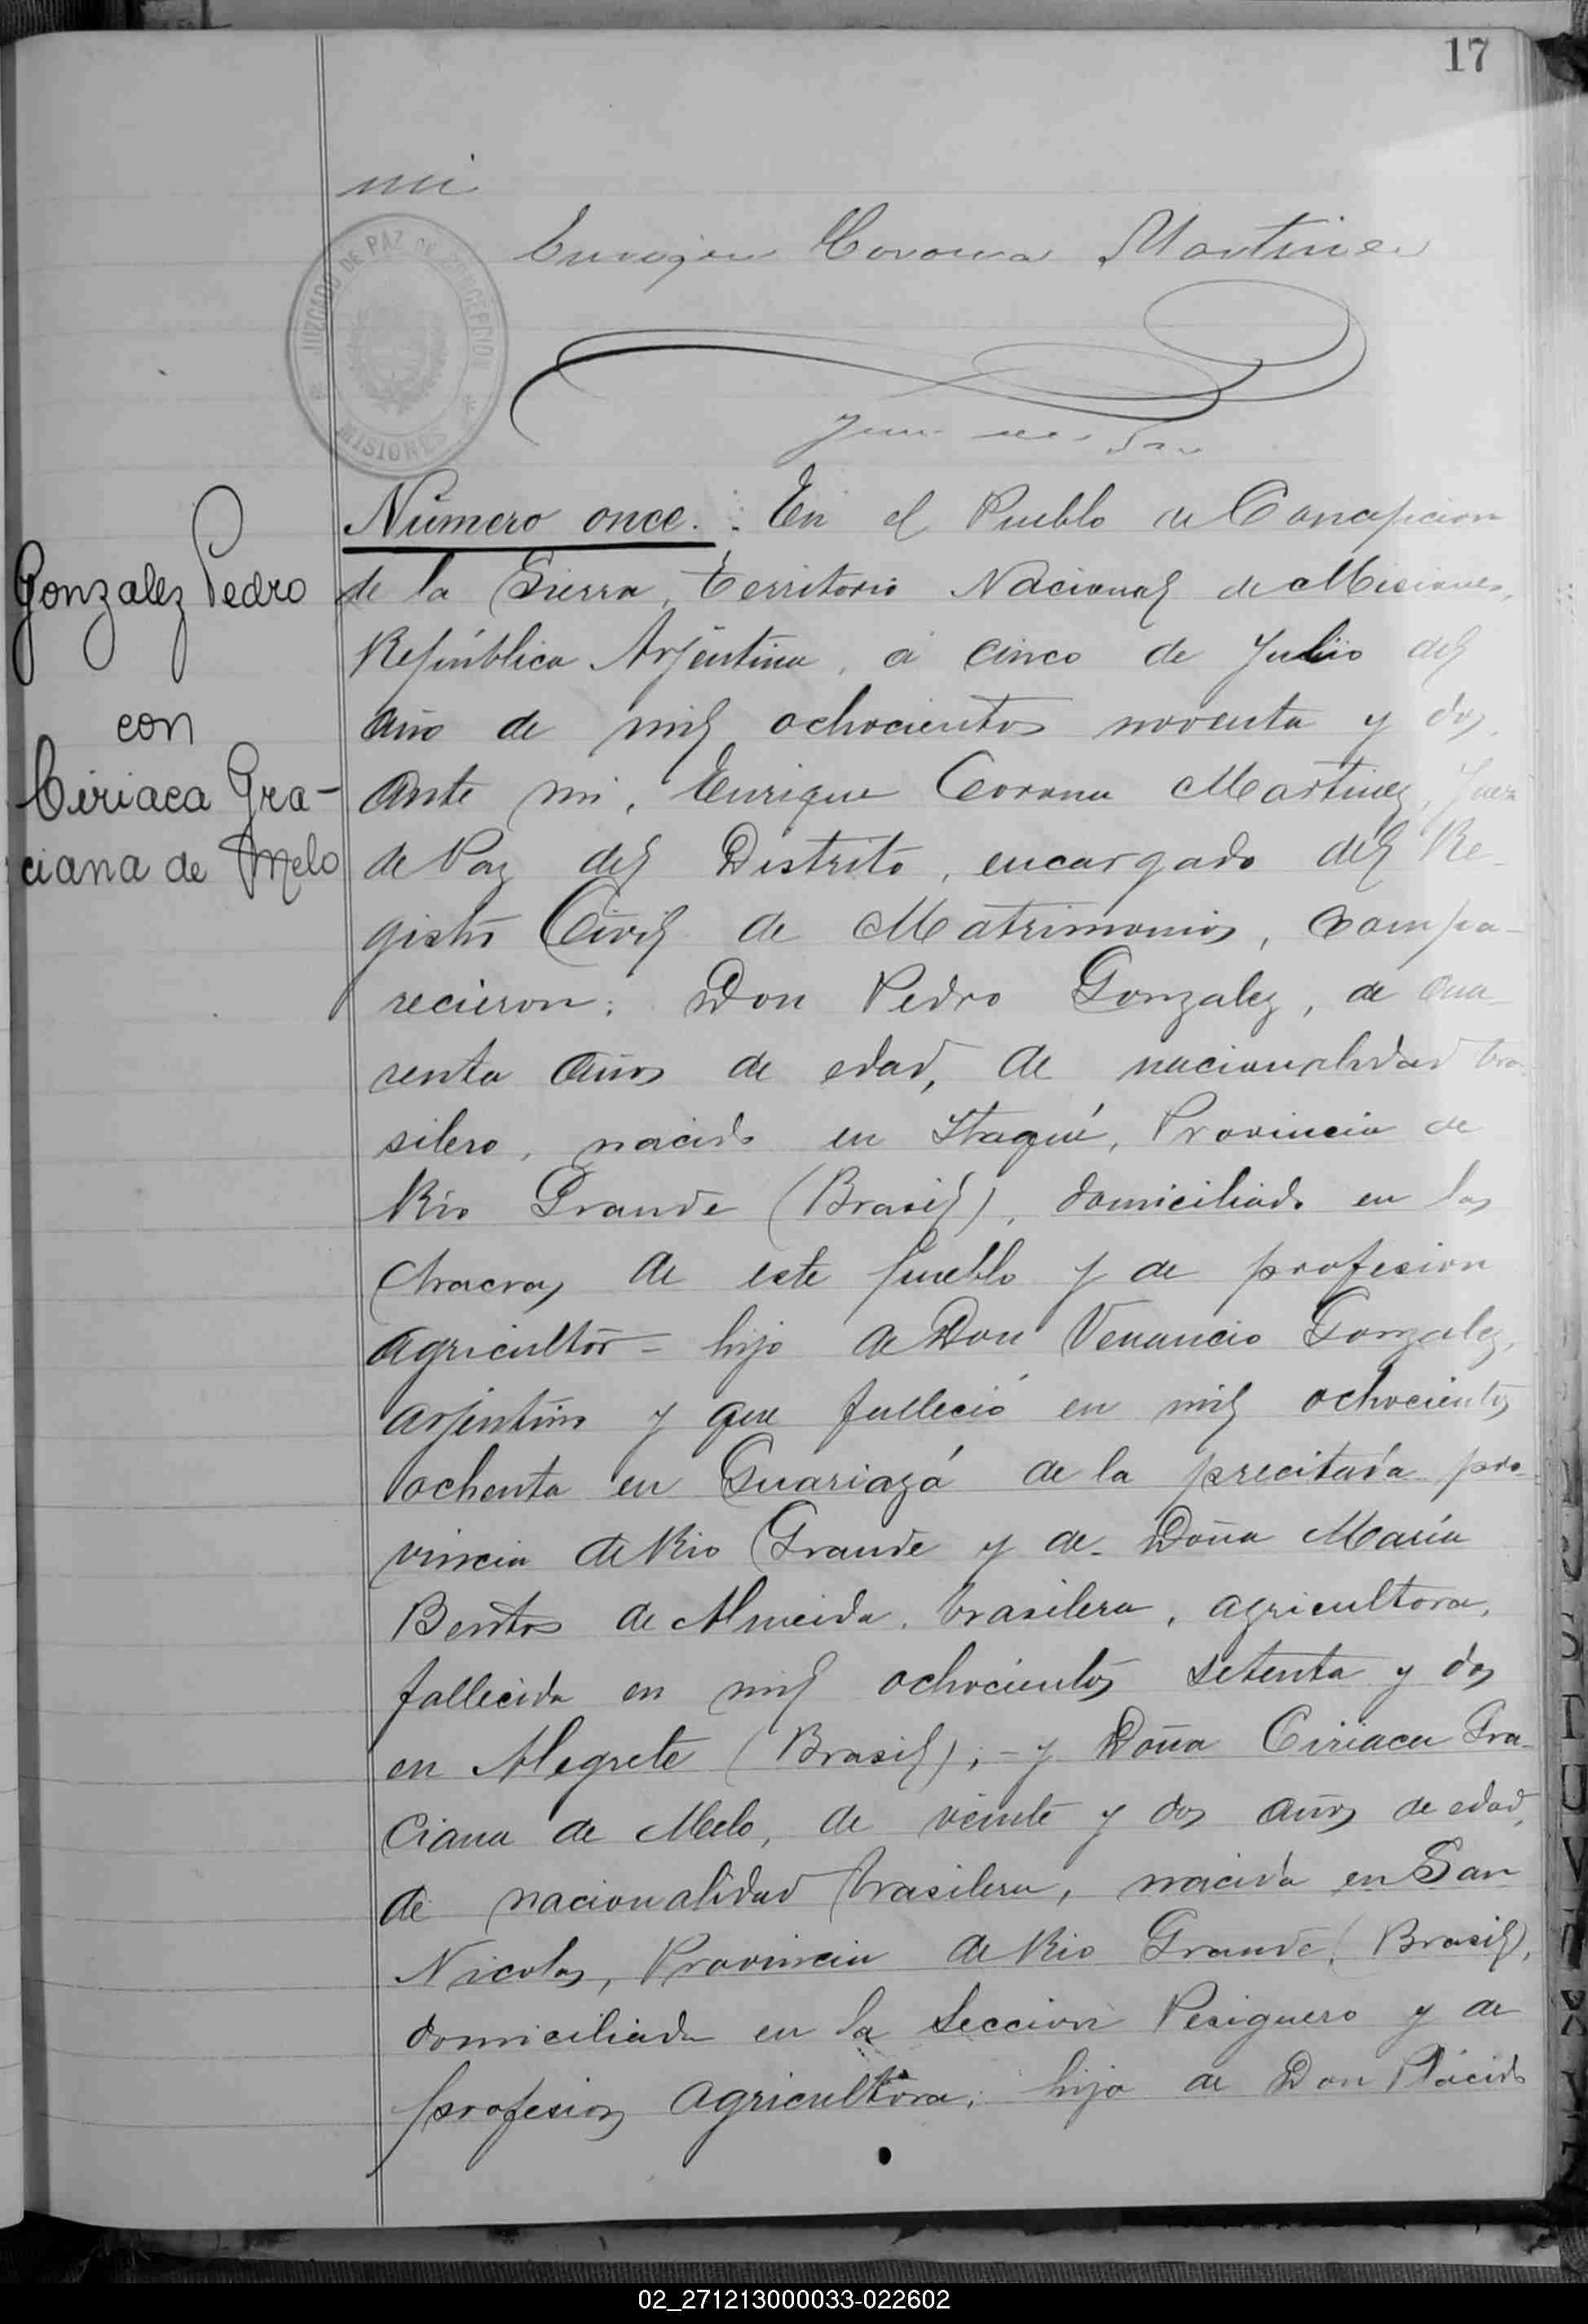 17
mi
Enrique Corona Martinez
JUZGADO DE PAZ DE CONCEPCION
MISIONES
Juez de Paz
Gonzalez Pedro
con
Ciriaca Gra-
ciana de Melo
Número once. En el Pueblo de Concepcion
de la Sierra, Territorio Nacional de Misiones,
República Arjentina, á cinco de Julio del
año de mil ochocientos noventa y dos,
ante mi, Enrique Corona Martinez, Juez
de Paz del Distrito, encargado del Re-
gistro Civil de Matrimonios, compa-
recieron: Don Pedro Gonzalez, de cua-
renta años de edad, de nacionalidad bra-
silero, nacido en Itaquí, Provincia de
Rio Grande (Brasil), domiciliado en las
chacras de este pueblo y de profesion
agricultor - hijo de Don Venancio Gonzalez,
arjentino y que falleció en mil ochocientos
ochenta en Guariazá de la precitada pro-
vincia de Rio Grande y de Doña María
Bentos de Almeida, brasilera, agricultora,
fallecida en mil ochocientos setenta y dos
en Alegrete (Brasil); - y Doña Ciriaca Gra-
ciana de Melo, de veinte y dos años de edad,
de nacionalidad brasilera, nacida en San
Nicolas, Provincia de Rio Grande (Brasil),
domiciliada en la Seccion Persiguero y de
profesion agricultora; hija de Don Plácido
02_271213000033-022602